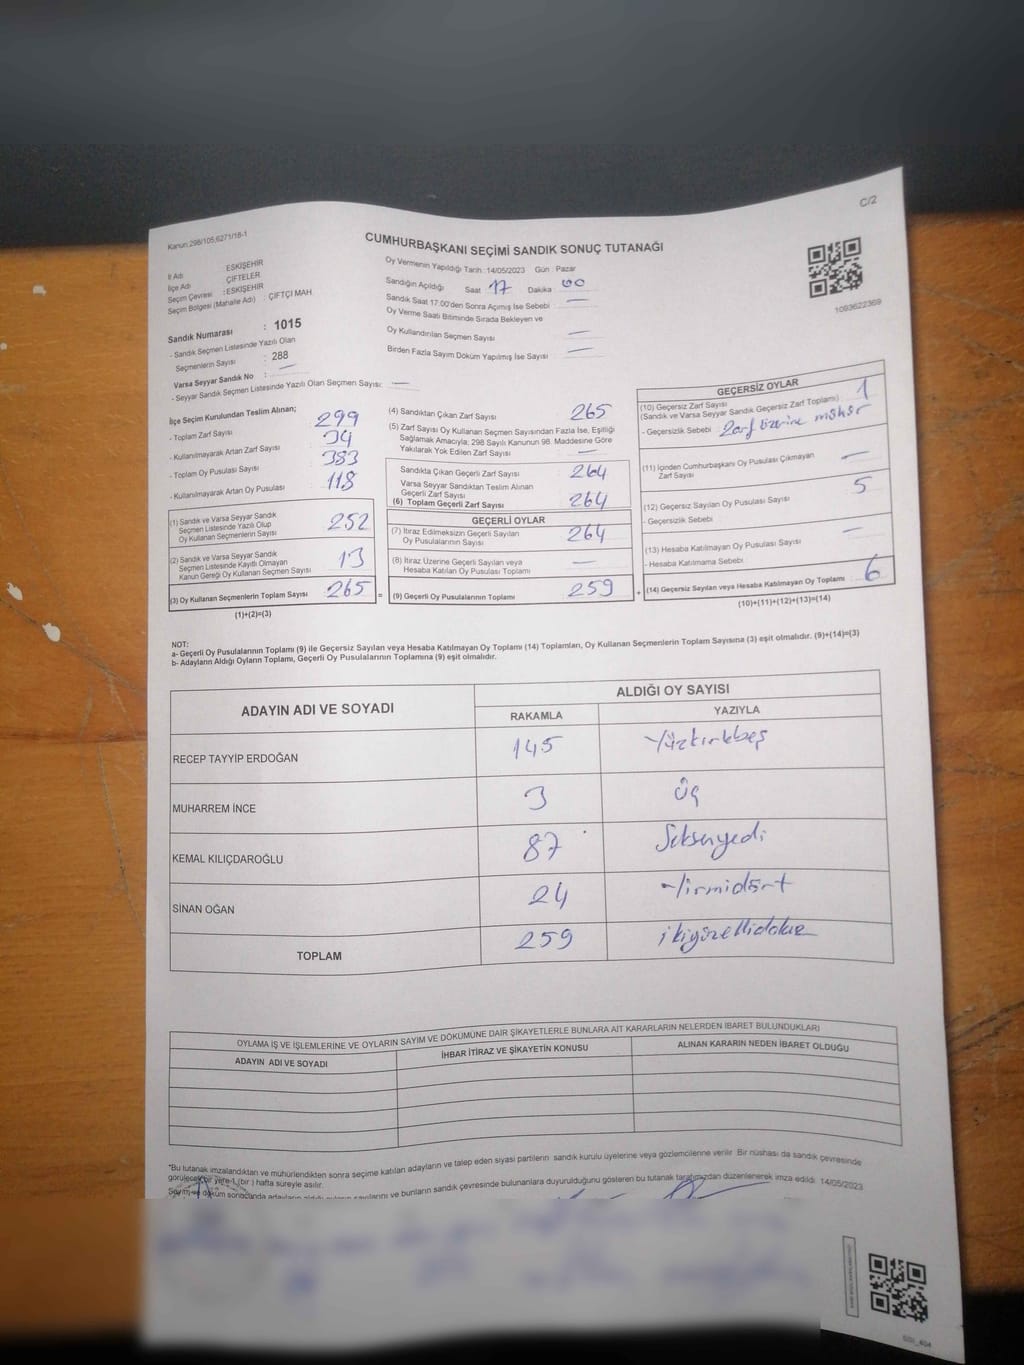 C/2
Kanun;298/105,6271/18-1
CUMHURBAŞKANI SEÇİMİ SANDIK SONUÇ TUTANAĞI
İl Adı : ESKİŞEHİR
İlçe Adı : ÇİFTELER
Seçim Çevresi : ESKİŞEHİR
Seçim Bölgesi (Mahalle Adı) : ÇİFTÇİ MAH
Sandık Numarası : 1015
- Sandık Seçmen Listesinde Yazılı Olan
Seçmenlerin Sayısı : 288
Varsa Seyyar Sandık No : —
- Seyyar Sandık Seçmen Listesinde Yazılı Olan Seçmen Sayısı: —
Oy Vermenin Yapıldığı Tarih :14/05/2023 Gün : Pazar
Sandığın Açıldığı Saat 17 Dakika 00
Sandık Saat 17.00'den Sonra Açımış İse Sebebi —
Oy Verme Saati Bitiminde Sırada Bekleyen ve
Oy Kullandırılan Seçmen Sayısı —
Birden Fazla Sayım Döküm Yapılmış İse Sayısı —
1093622369
İlçe Seçim Kurulundan Teslim Alınan;
- Toplam Zarf Sayısı 299
- Kullanılmayarak Artan Zarf Sayısı 34
- Toplam Oy Pusulası Sayısı 383
- Kullanılmayarak Artan Oy Pusulası 118
(1) Sandık ve Varsa Seyyar Sandık
Seçmen Listesinde Yazılı Olup
Oy Kullanan Seçmenlerin Sayısı 252
(2) Sandık ve Varsa Seyyar Sandık
Seçmen Listesinde Kayıtlı Olmayan
Kanun Gereği Oy Kullanan Seçmen Sayısı 13
(3) Oy Kullanan Seçmenlerin Toplam Sayısı 265 =
(1)+(2)=(3)
(4) Sandıktan Çıkan Zarf Sayısı 265
(5) Zarf Sayısı Oy Kullanan Seçmen Sayısından Fazla İse, Eşitliği
Sağlamak Amacıyla; 298 Sayılı Kanunun 98. Maddesine Göre
Yakılarak Yok Edilen Zarf Sayısı —
Sandıkta Çıkan Geçerli Zarf Sayısı 264
Varsa Seyyar Sandıktan Teslim Alınan
Geçerli Zarf Sayısı
(6) Toplam Geçerli Zarf Sayısı 264
GEÇERLİ OYLAR
(7) İtiraz Edilmeksizin Geçerli Sayılan
Oy Pusulalarının Sayısı 264
(8) İtiraz Üzerine Geçerli Sayılan veya
Hesaba Katılan Oy Pusulası Toplamı —
(9) Geçerli Oy Pusulalarının Toplamı 259 +
GEÇERSİZ OYLAR
(10) Geçersiz Zarf Sayısı 1
(Sandık ve Varsa Seyyar Sandık Geçersiz Zarf Toplamı)
- Geçersizlik Sebebi : Zarf üzerine mühür
(11) İçinden Cumhurbaşkanı Oy Pusulası Çıkmayan
Zarf Sayısı —
(12) Geçersiz Sayılan Oy Pusulası Sayısı 5
- Geçersizlik Sebebi
(13) Hesaba Katılmayan Oy Pusulası Sayısı —
- Hesaba Katılmama Sebebi
(14) Geçersiz Sayılan veya Hesaba Katılmayan Oy Toplamı 6
(10)+(11)+(12)+(13)=(14)
NOT:
a- Geçerli Oy Pusulalarının Toplamı (9) ile Geçersiz Sayılan veya Hesaba Katılmayan Oy Toplamı (14) Toplamları, Oy Kullanan Seçmenlerin Toplam Sayısına (3) eşit olmalıdır. (9)+(14)=(3)
b- Adayların Aldığı Oyların Toplamı, Geçerli Oy Pusulalarının Toplamına (9) eşit olmalıdır.
ADAYIN ADI VE SOYADI ALDIĞI OY SAYISI
RAKAMLA YAZIYLA
RECEP TAYYİP ERDOĞAN 145 Yüzkırkbeş
MUHARREM İNCE 3 üç
KEMAL KILIÇDAROĞLU 87 Seksenyedi
SİNAN OĞAN 24 Yirmidört
TOPLAM 259 ikiyüzellidokuz
OYLAMA İŞ VE İŞLEMLERİNE VE OYLARIN SAYIM VE DÖKÜMÜNE DAİR ŞİKAYETLERLE BUNLARA AİT KARARLARIN NELERDEN İBARET BULUNDUKLARI
ADAYIN ADI VE SOYADI İHBAR İTİRAZ VE ŞİKAYETİN KONUSU ALINAN KARARIN NEDEN İBARET OLDUĞU
*Bu tutanak imzalandıktan ve mühürlendikten sonra seçime katılan adayların ve talep eden siyasi partilerin sandık kurulu üyelerine veya gözlemcilerine verilir. Bir nüshası da sandık çevresinde
görülecek bir yere 1 (bir ) hafta süreyle asılır.
Sayım ve döküm sonucunda adayların aldığı oyların sayılarını ve bunların sandık çevresinde bulunanlara duyurulduğunu gösteren bu tutanak tarafımızdan düzenlenerek imza edildi. 14/05/2023